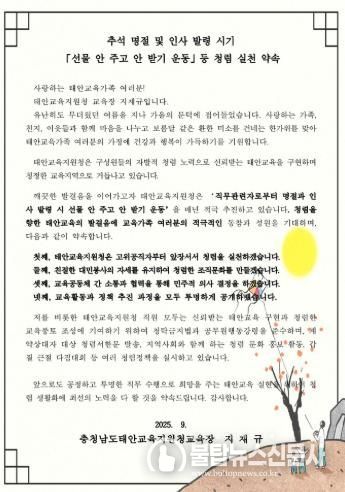 추석 명절 및 인사 발령 시기
「선물 안 주고 안 받기 운동」등 청렴 실천 약속
사랑하는 태안교육가족 여러분!
태안교육지원청 교육장 지재규입니다.
유난히도 무더웠던 여름을 지나 가을의 문턱에 접어들었습니다. 사랑하는 가족,
친지, 이웃들과 함께 마음을 나누고 보름달 같은 환한 미소를 건네는 한가위를 맞아
태안교육가족 여러분의 가정에 건강과 행복이 가득하기를 기원합니다.
태안교육지원청은 구성원들의 자발적 청렴 노력으로 신뢰받는 태안교육을 구현하며
청정한 교육지역으로 거듭나고 있습니다.
깨끗한 발걸음을 이어가고자 태안교육지원청은 '직무관련자로부터 명절과 인
사 발령 시 선물 안 주고 안 받기 운동'을 매년 적극 추진하고 있습니다. 청렴을
향한 태안교육의 발걸음에 교육가족 여러분의 적극적인 동참과 성원을 기대하며,
다음과 같이 약속합니다.
첫째, 태안교육지원청은 고위공직자부터 앞장서서 청렴을 실천하겠습니다.
둘째, 친절한 대민봉사의 자세를 유지하여 청렴한 조직문화를 만들겠습니다.
셋째, 교육공동체 간 소통과 협력을 통해 민주적 의사 결정을 하겠습니다.
넷째, 교육활동과 정책 추진 과정을 모두 투명하게 공개하겠습니다.
저를 비롯한 태안교육지원청 직원 모두는 신뢰받는 태안교육 구현과 청렴한
교육풍토 조성에 기여하기 위하여 청탁금지법과 공무원행동강령을 준수하며, 계
약상대자 대상 청렴서한문 발송, 지역사회와 함께 하는 청렴 문화 홍보 활동, 갑
질 근절 다짐대회 등 여러 청렴정책을 실시하고 있습니다.
앞으로도 공정하고 투명한 직무 수행으로 희망을 주는 태안교육 실현을 위하여 청
렴 생활화에 최선의 노력을 다 할 것을 약속드립니다. 감사합니다.
2025. 9.
충청남도태안교육지원청교육장 지 재 규
불탑뉴스신문사
www.bultopnews.co.kr